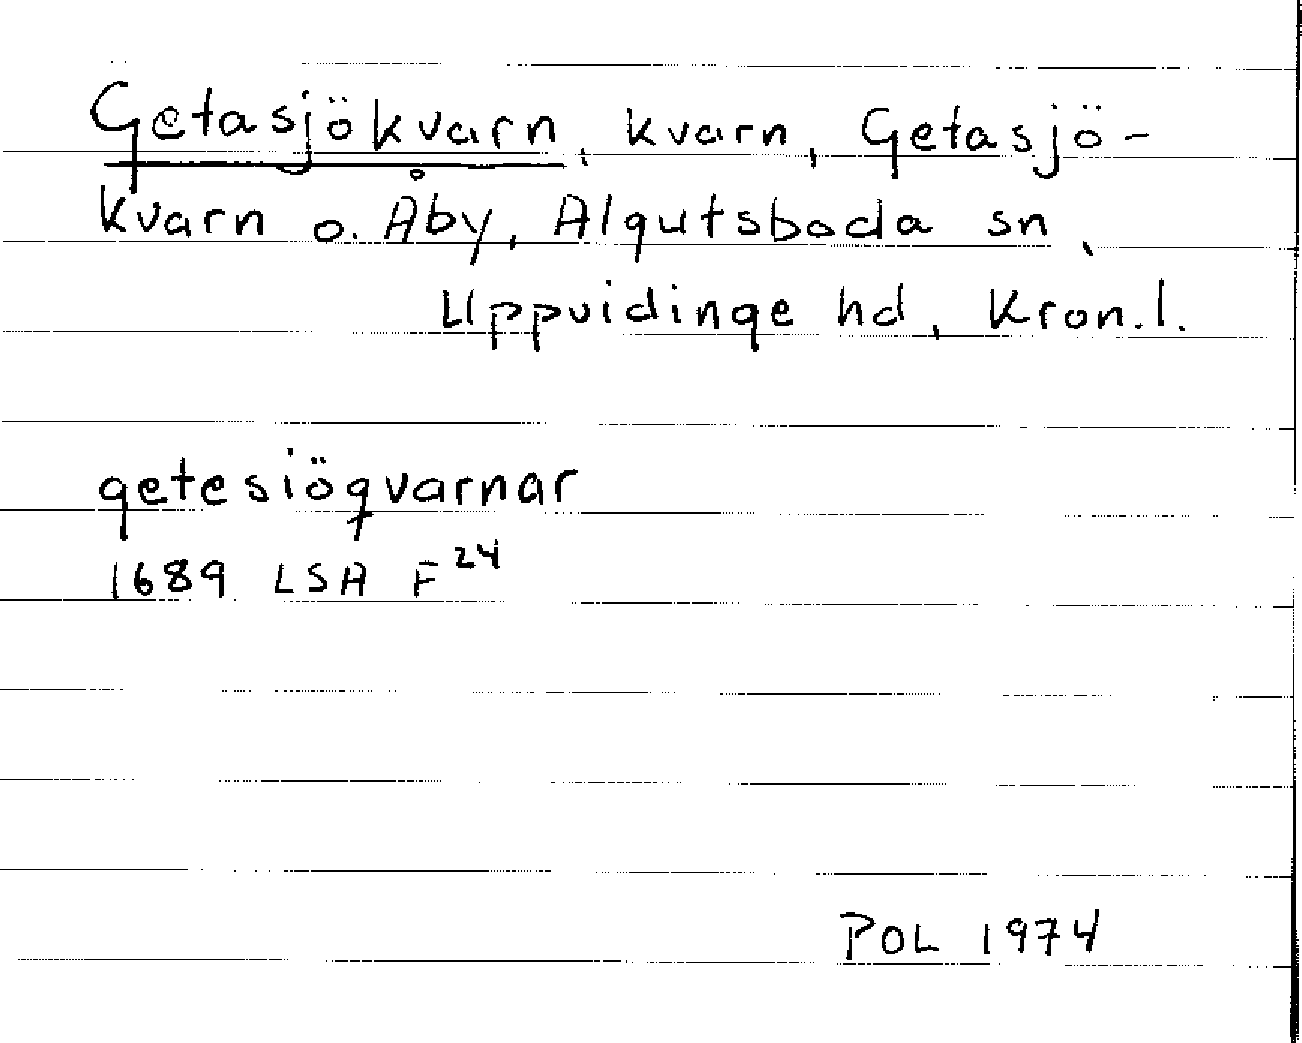 Getasjökvarn, kvarn, Getasjö-
kvarn o. Åby, Algutsboda sn,
Uppvidinge hd, Kron.l.
getesiöqvarnar
1689 LSA F24
POL 1974